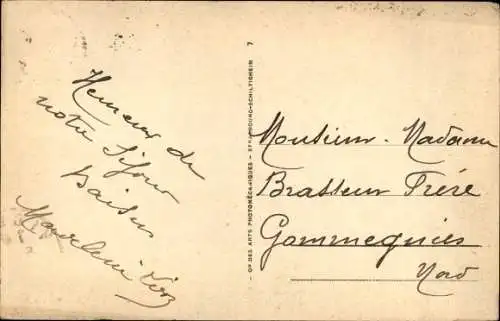 Heureux de
notre Séjour
baisers
Madeleine
CIE DES ARTS PHOTOMÉCANIQUES - STRASBOURG-SCHILTIGHEIM 7
Monsieur. Madame
Brasseur Frère
Gommegnies
Nord